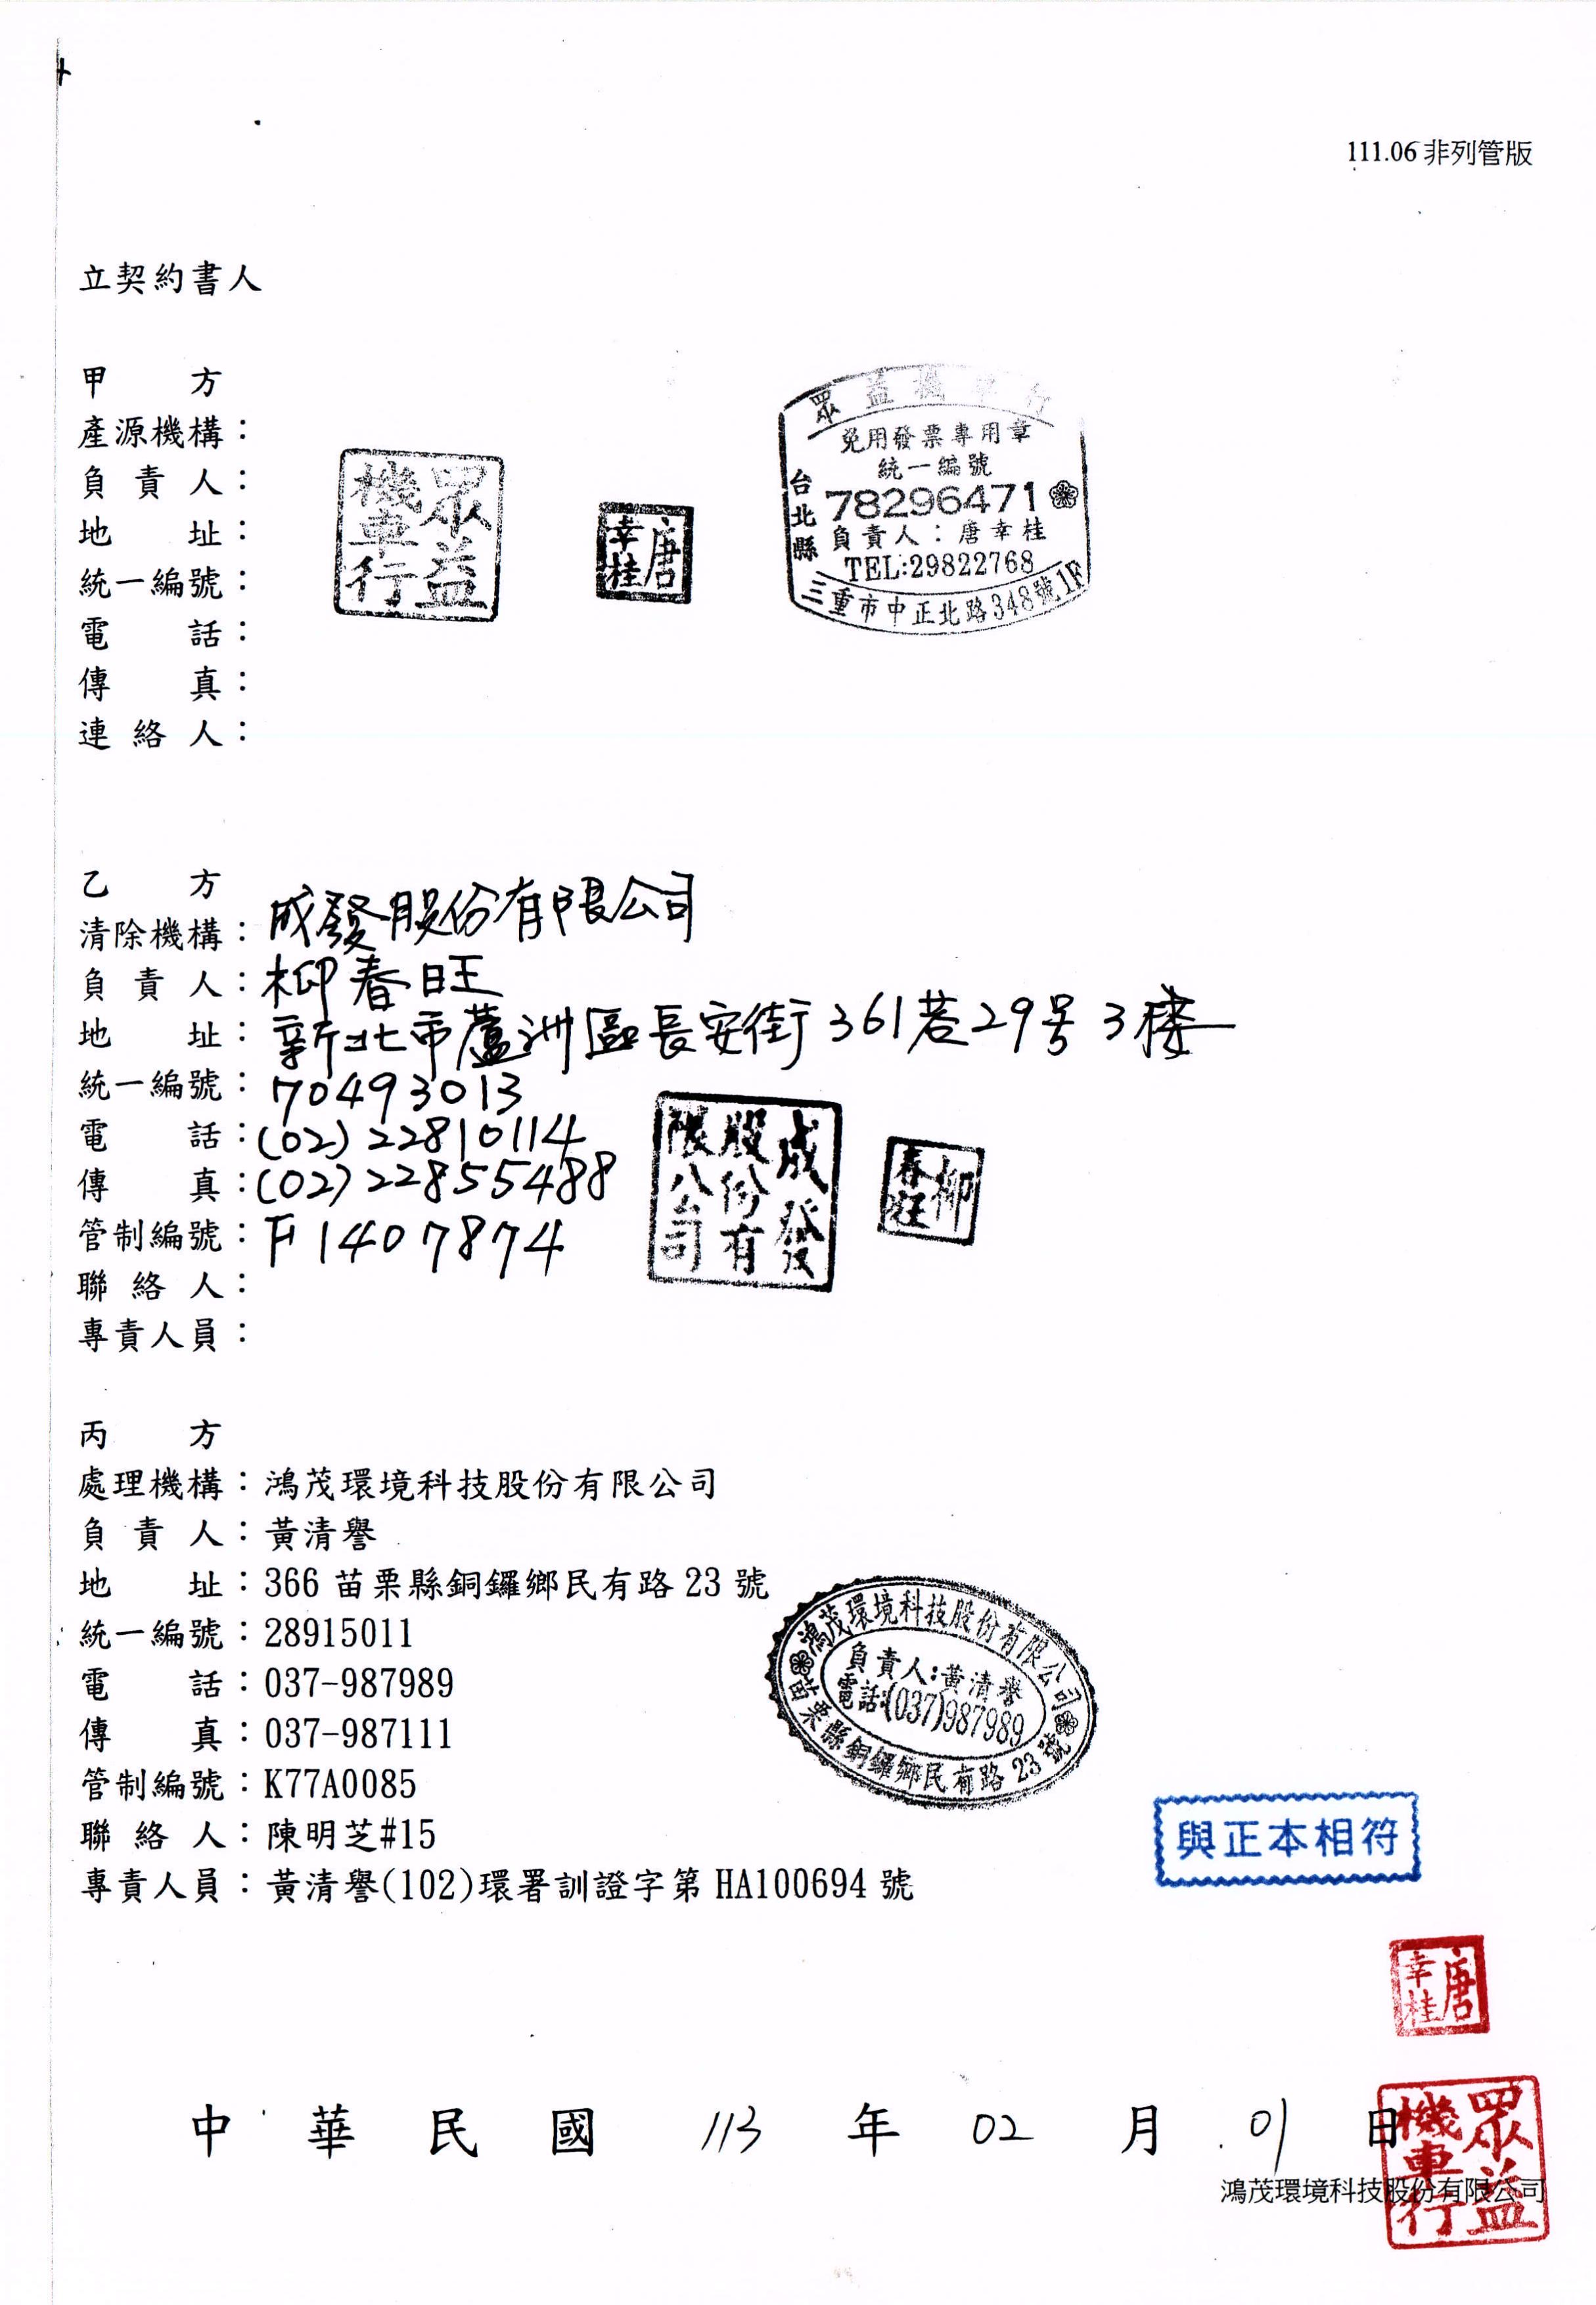 111.06 非列管版
立契約書人
甲 方
產源機構：
負責人：
地 址：
統一編號：
電 話：
傳 真：
連絡人：
眾益
機車行
唐
幸桂
眾益機車行
免用發票專用章
統一編號
台北縣
78296471
負責人：唐幸桂
TEL:29822768
三重市中正北路348號1F
乙 方
清除機構：成發股份有限公司
負責人：柳春旺
地 址：新北市蘆洲區長安街361巷29号3樓
統一編號：70493013
電 話：(02)22810114
傳 真：(02)22855488
管制編號：F1407874
聯絡人：
專責人員：
成發
股份有
限公司
柳
春旺
丙 方
處理機構：鴻茂環境科技股份有限公司
負責人：黃清譽
地 址：366 苗栗縣銅鑼鄉民有路 23 號
統一編號：28915011
電 話：037-987989
傳 真：037-987111
管制編號：K77A0085
聯絡人：陳明芝#15
專責人員：黃清譽(102)環署訓證字第 HA100694 號
鴻茂環境科技股份有限公司
負責人:黃清譽
電話:(037)987989
苗栗縣銅鑼鄉民有路23號
與正本相符
唐
幸桂
中 華 民 國 113 年 02 月 01 日
鴻茂環境科技股份有限公司
眾益
機車行